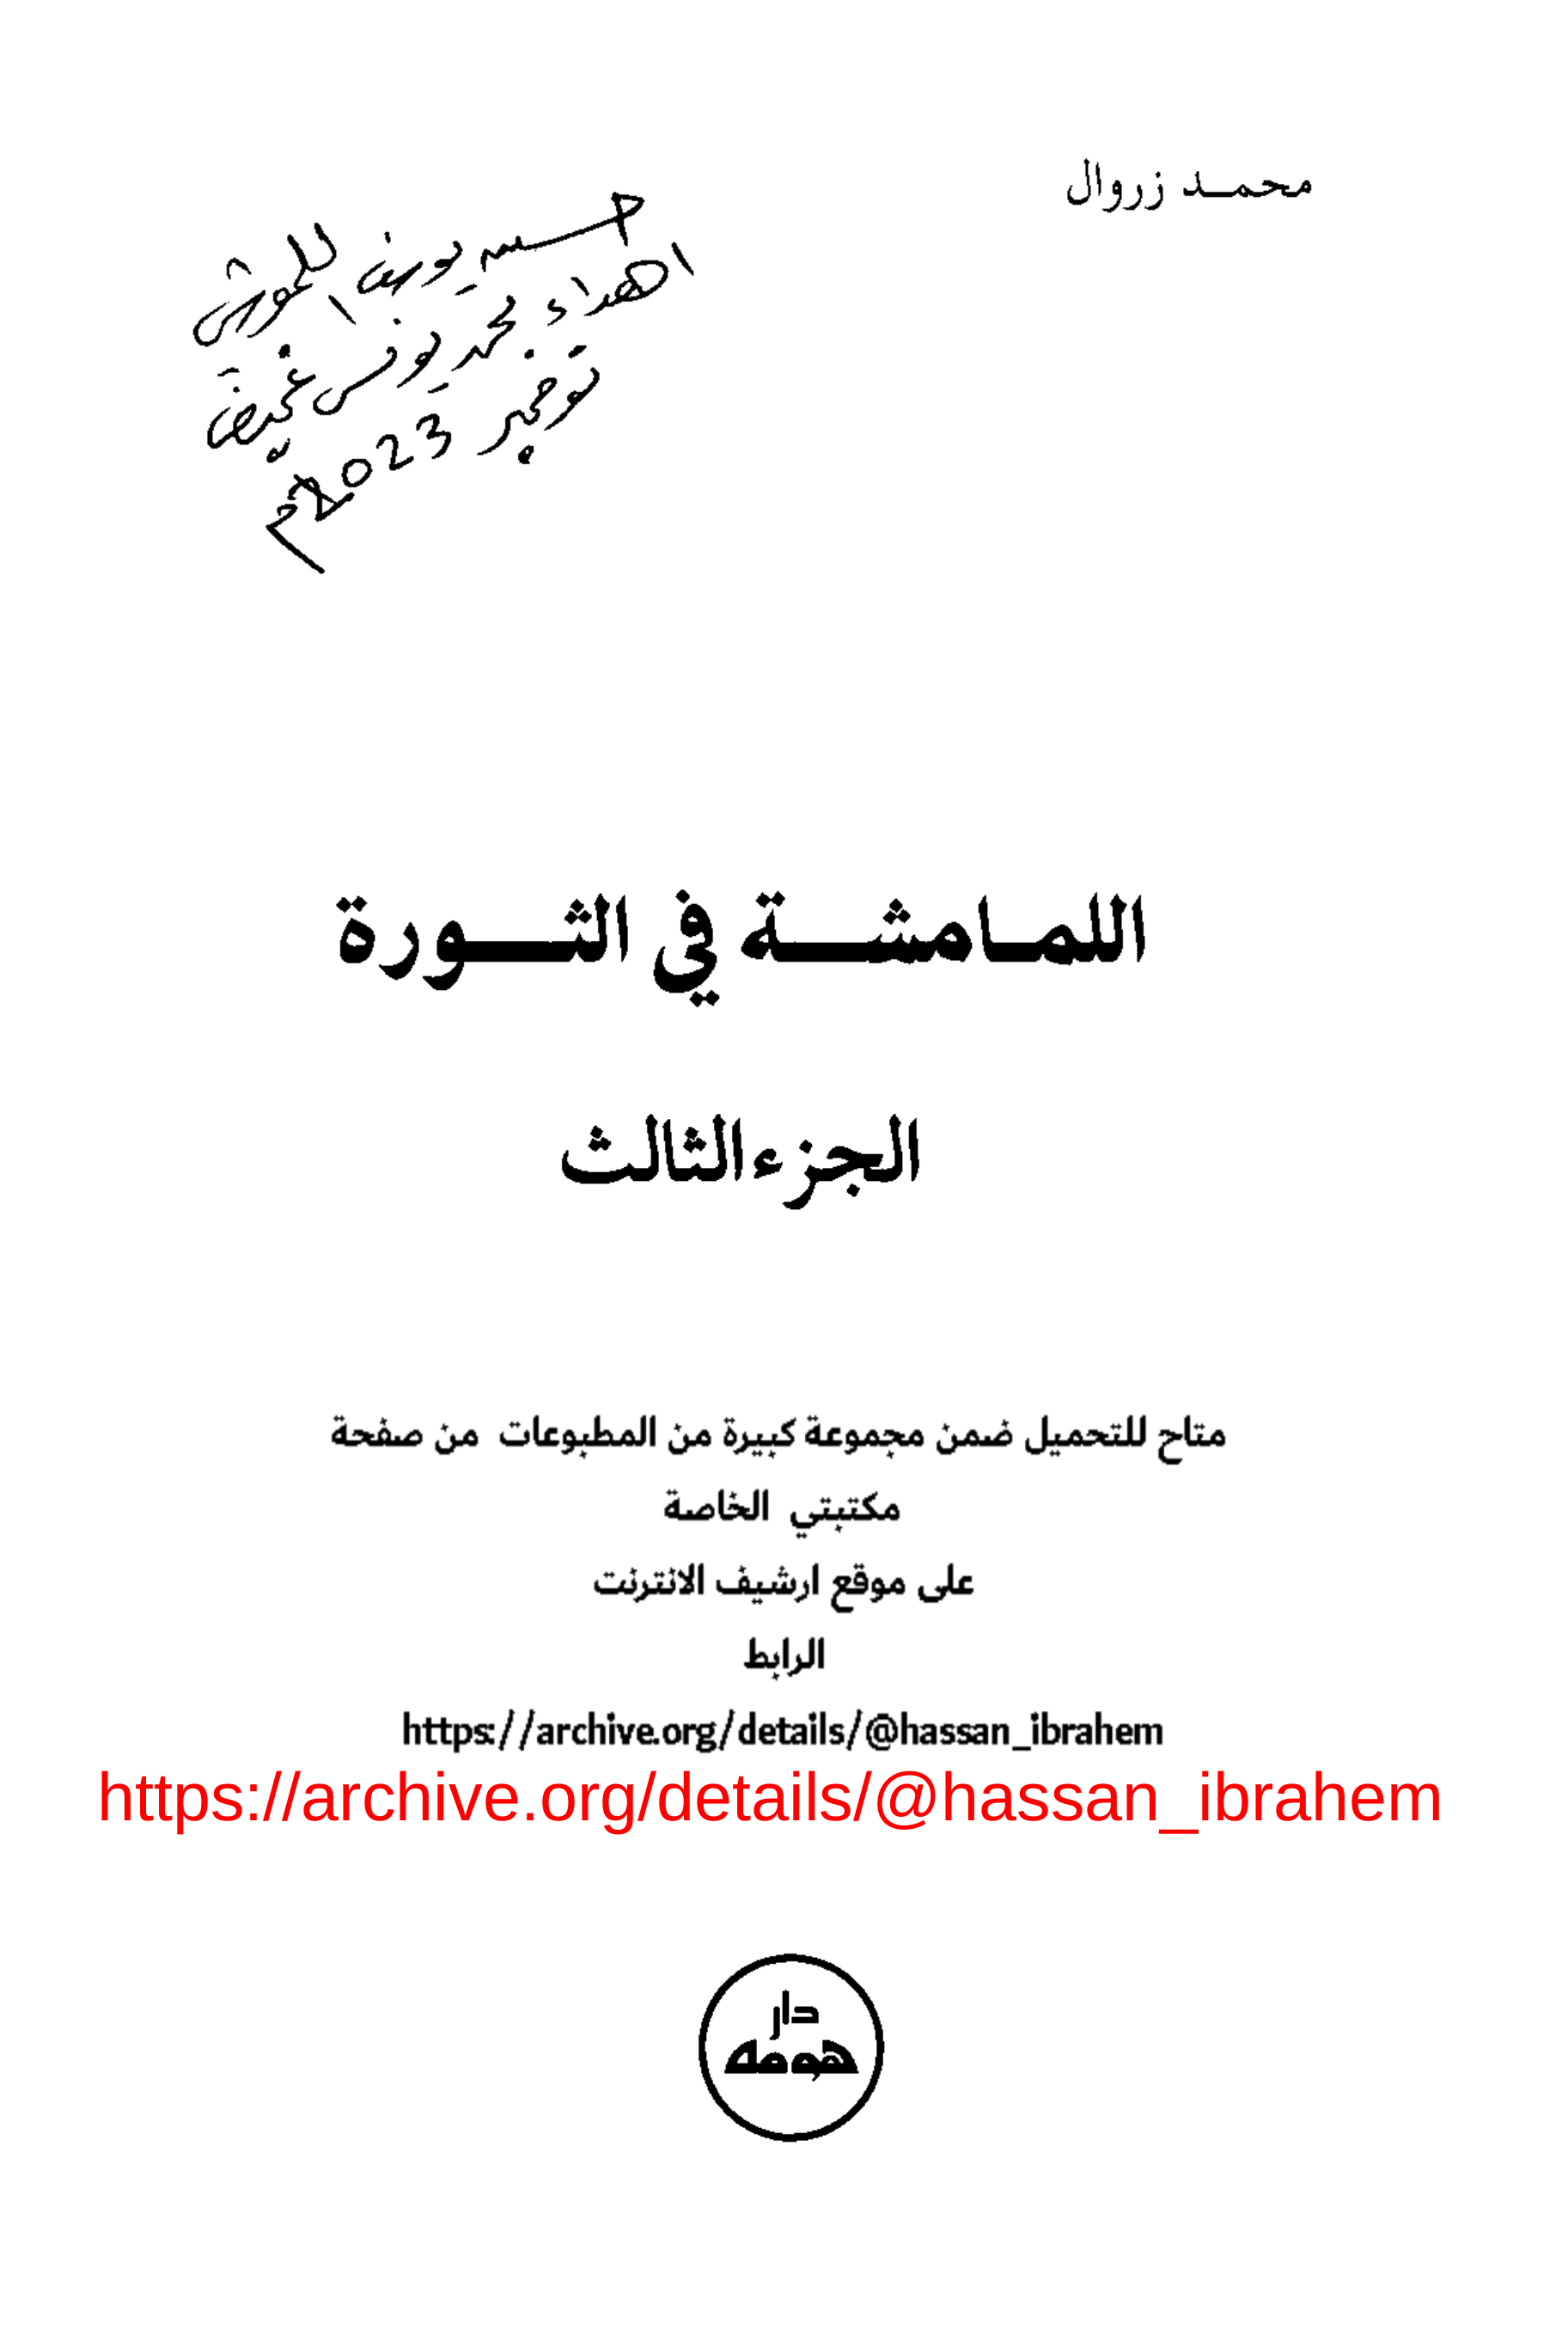 محمد زروال
اهداء محمد يونس
2023م
اللمامشة في الثورة
الجزء الثالث
متاح للتحميل ضمن مجموعة كبيرة من المطبوعات من صفحة
مكتبتي الخاصة
على موقع ارشيف الانترنت
الرابط
https://archive.org/details/@hassan_ibrahem
https://archive.org/details/@hassan_ibrahem
دار
هومه